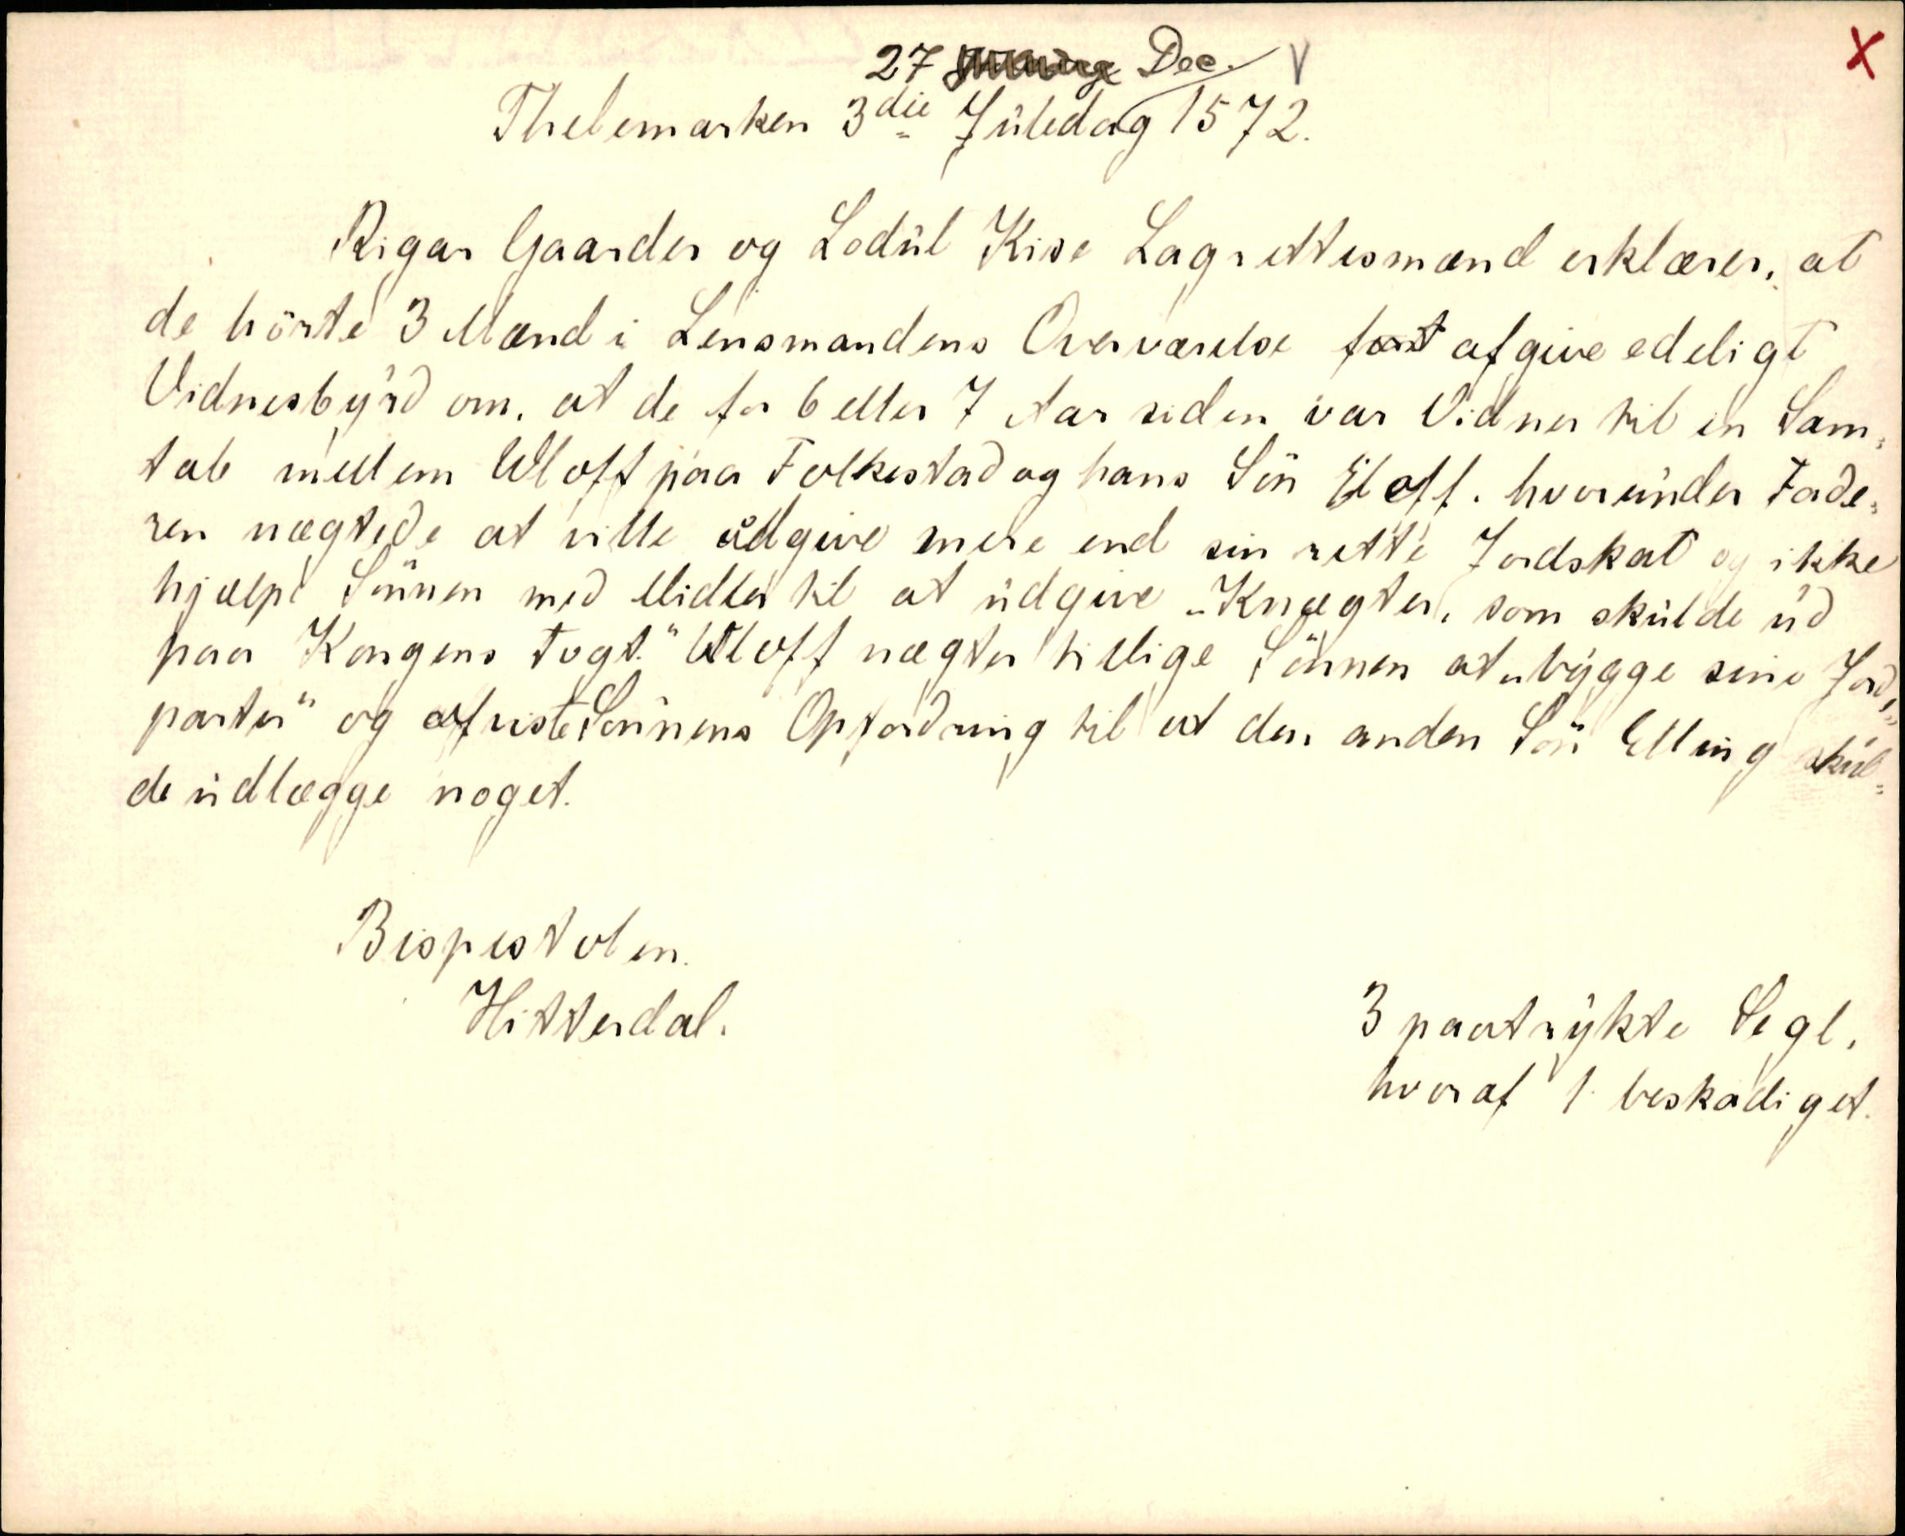 27 Dec. V X
Thelemarken 3die Juledag 1572.
Rigar Gaarder og Lodul Kise Lagrettesmænd erklærer, at
de hörte 3 Mænd i Lensmandens Overværelse afgive edeligt
Vidnesbyrd om, at de for 6 eller 7 Aar siden var Vidner til en Sam-
tale mellem Uloff paa Folkestad og hans Sön Eloff. hvorunder Fade-
ren nægtede at ville udgive mere end sin rette Jordskat og ikke
hjælpe Sönnen med Midler til at udgive „Knægter, som skulde ud
paa Kongens Togt." Uloff nægter tillige Sönnen at „bygge sine Jord-
parter" og afviste Sönnens Opfordring til at den anden Sön Elling skul-
de udlægge noget.
Bispestolen.
Hitterdal.
3 paatrykte Segl,
hvoraf 1 beskadiget.